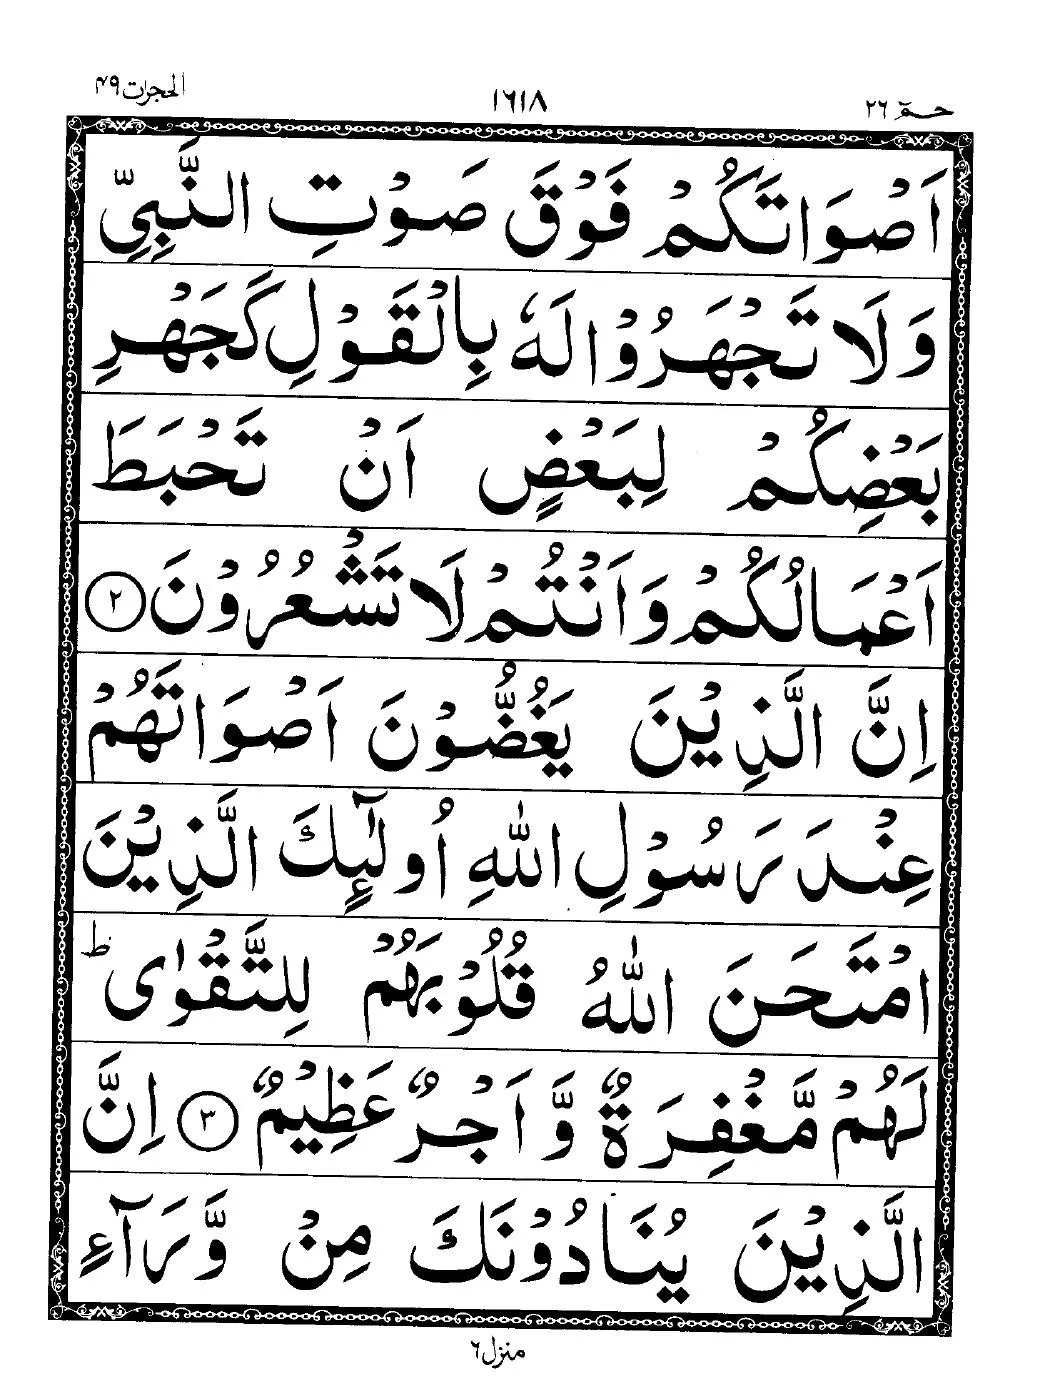 الحجرات ۴۹
۱۶۱۸
حٰمٓ ۲۶
اَصْوَاتَكُمْ فَوْقَ صَوْتِ النَّبِيِّ
وَلَا تَجْهَرُوْا لَهٗ بِالْقَوْلِ كَجَهْرِ
بَعْضِكُمْ لِبَعْضٍ اَنْ تَحْبَطَ
اَعْمَالُكُمْ وَاَنْتُمْ لَا تَشْعُرُوْنَ ۲
اِنَّ الَّذِيْنَ يَغُضُّوْنَ اَصْوَاتَهُمْ
عِنْدَ رَسُوْلِ اللّٰهِ اُولٰٓئِكَ الَّذِيْنَ
امْتَحَنَ اللّٰهُ قُلُوْبَهُمْ لِلتَّقْوٰى ؕ
لَهُمْ مَّغْفِرَةٌ وَّاَجْرٌ عَظِيْمٌ ۳ اِنَّ
الَّذِيْنَ يُنَادُوْنَكَ مِنْ وَّرَآءِ
منزل ۶